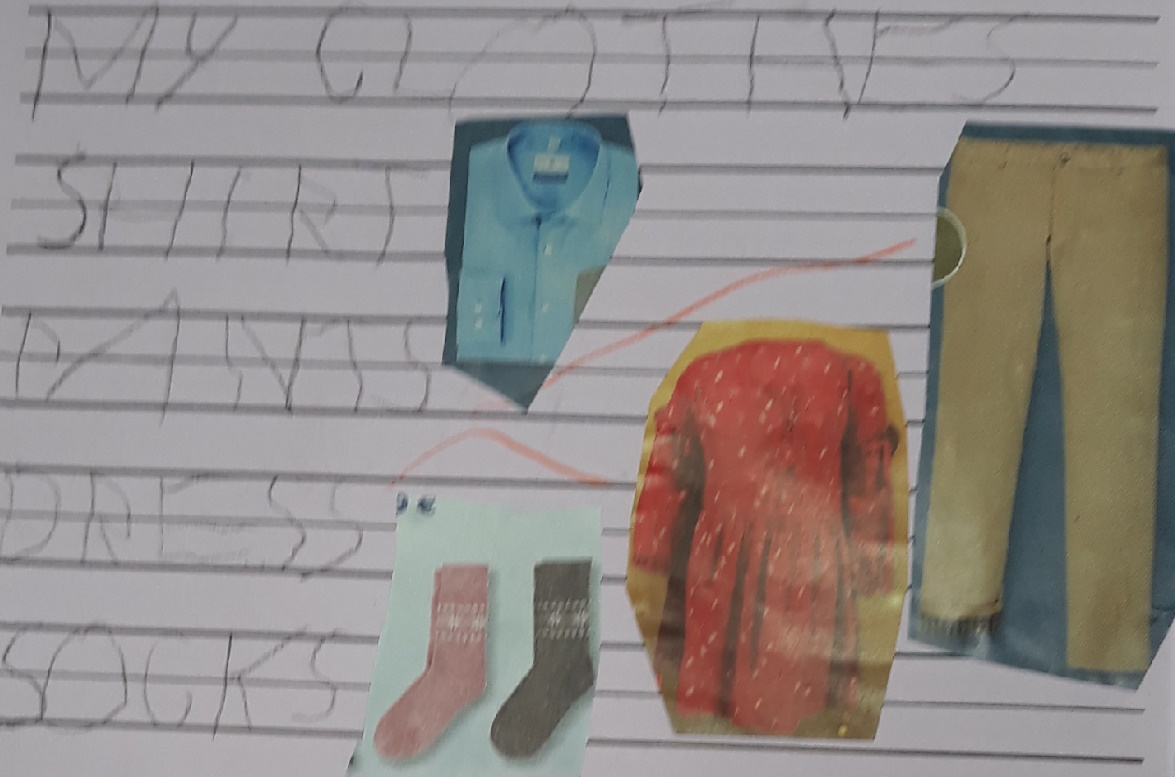 MY CLOTHES
SHIRT
PANTS
DRESS
SOCKS